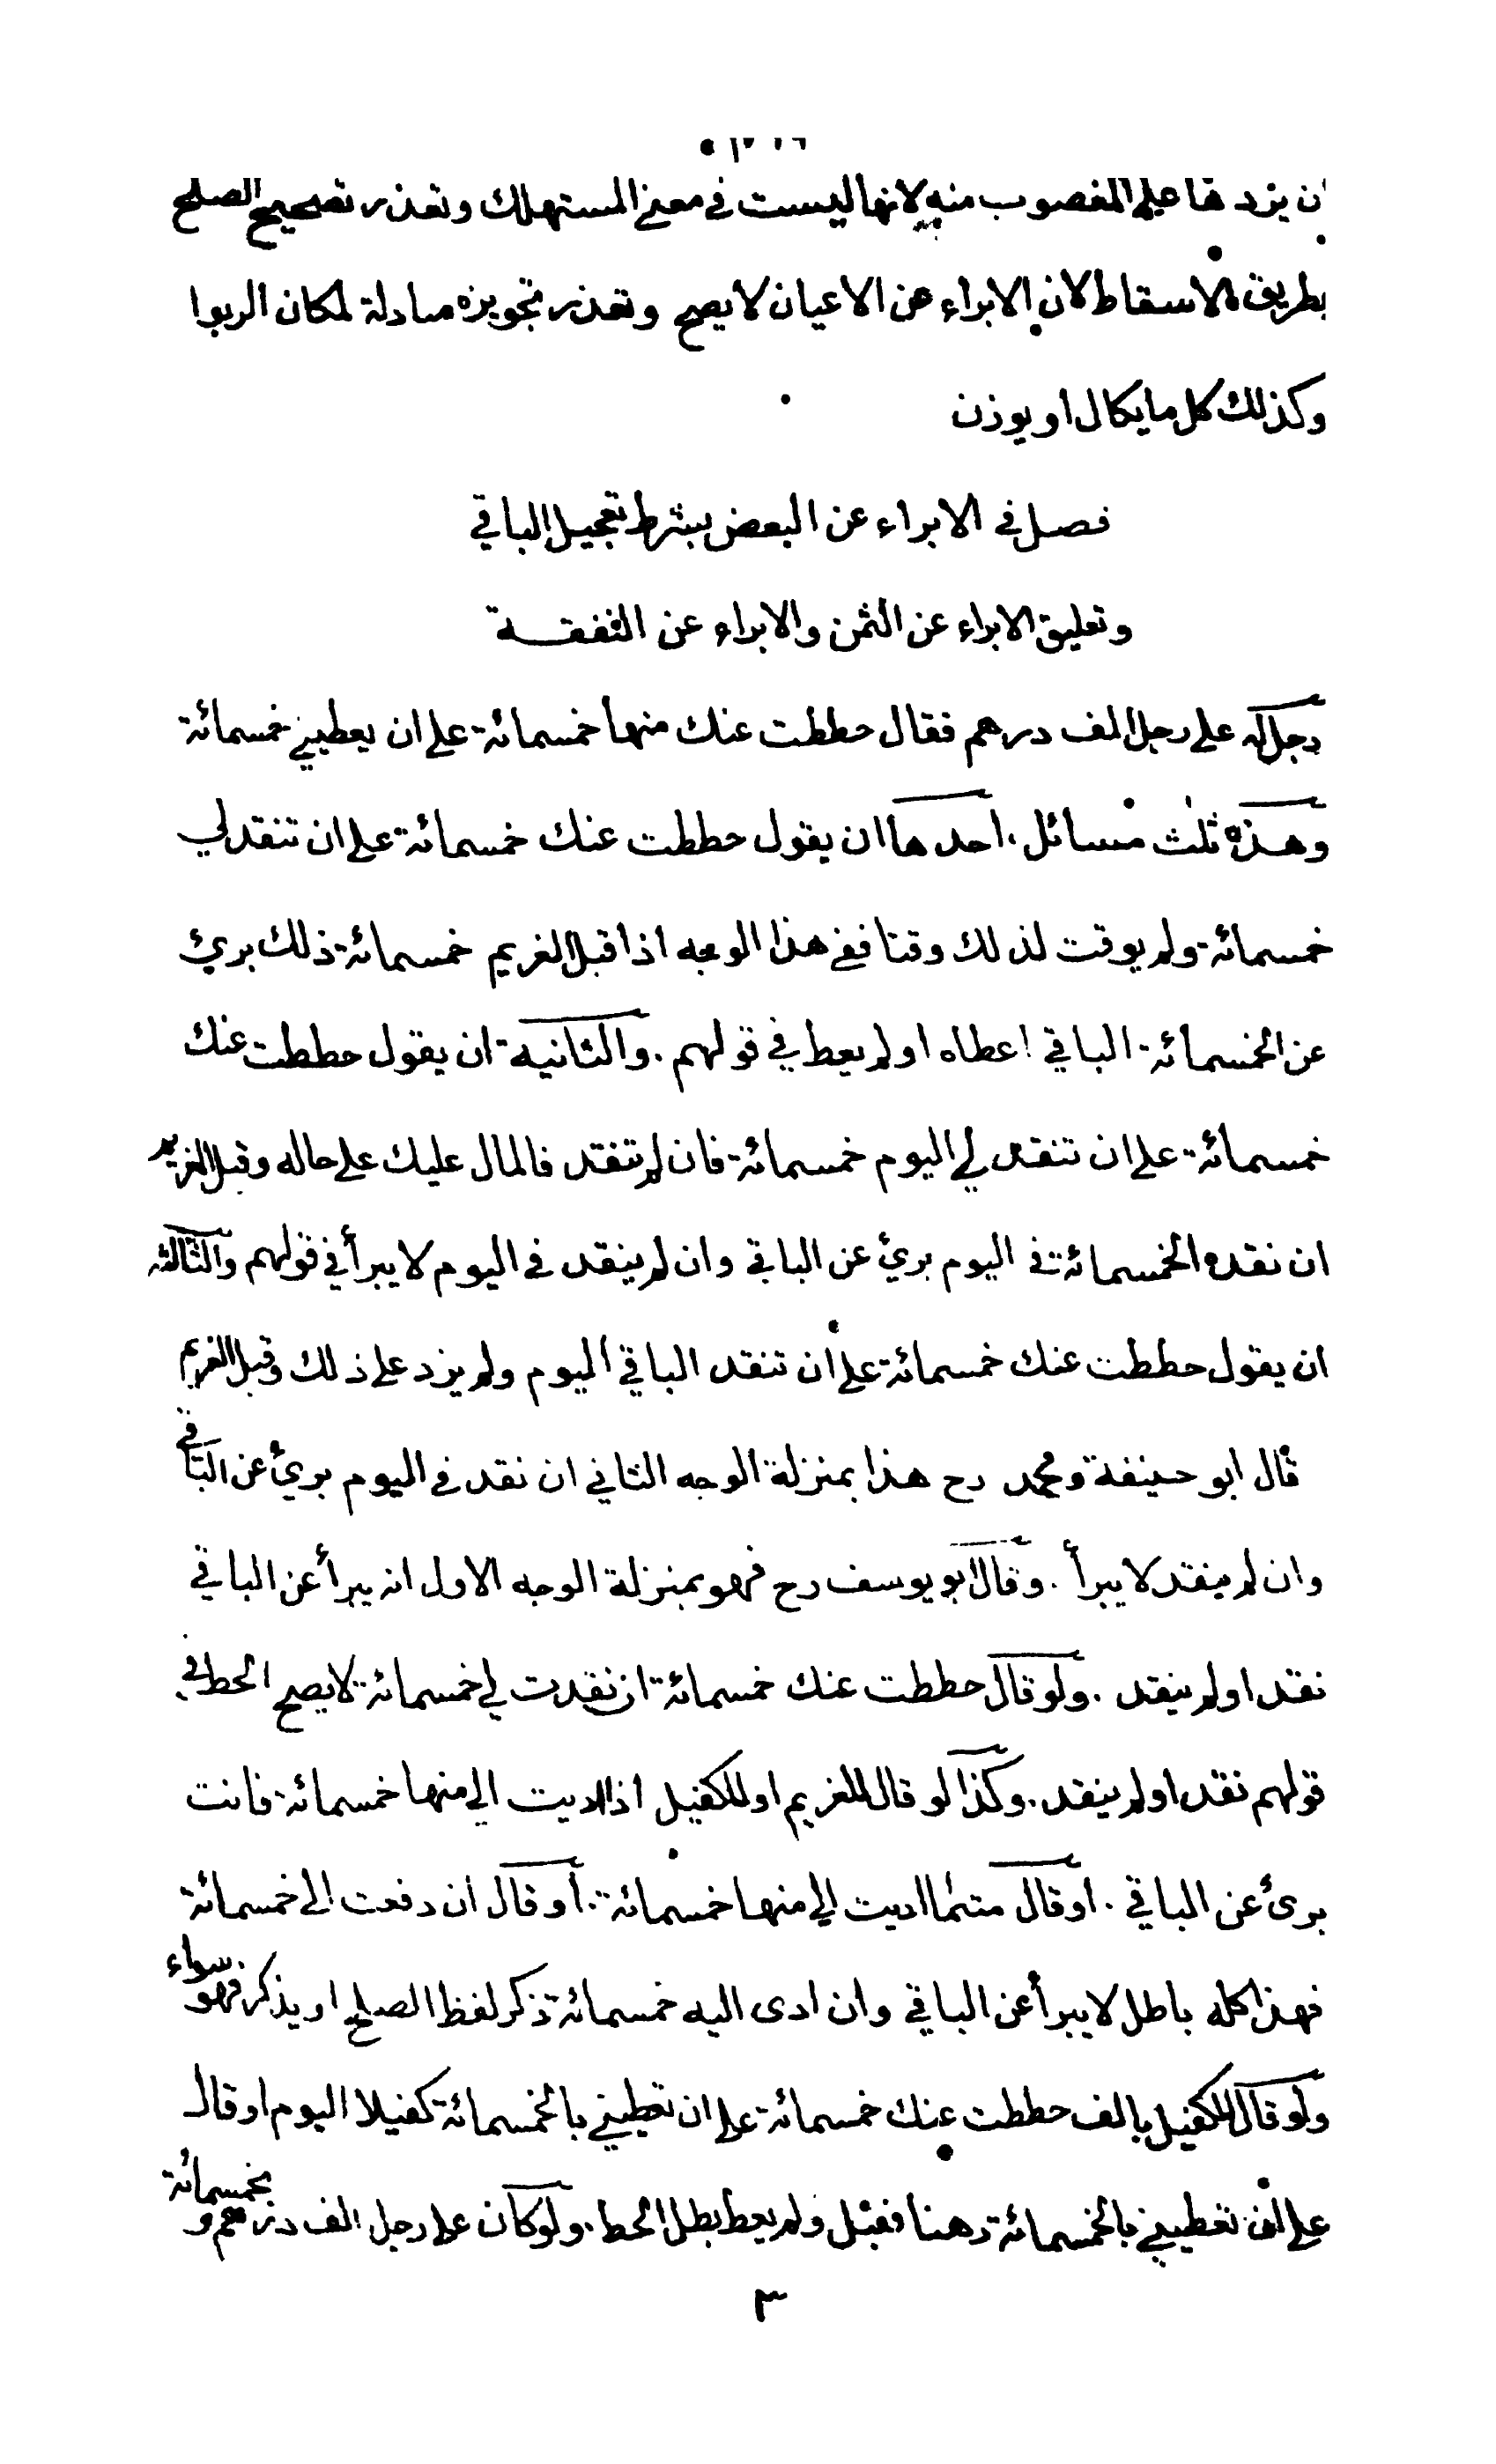 ان يردها على المغصوب منه لانها ليست في معنى المستهلك وتعذر تصحيح الصلح
بطريق الاسقاط لان الابراء عن الاعيان لا يصح وتعذر تجويزه مبادلة لمكان الربوا
وكذلك كل ما يكال او يوزن
فصل في الابراء عن البعض بشرط تعجيل الباقي
وتعليق الابراء عن الثمن والابراء عن النفقة
رجل له على رجل الف درهم فقال حططت عنك منها خمسمائة على ان يعطيني خمسمائة
وهذه ثلث مسائل، احدها ان يقول حططت عنك خمسمائة على ان تنقد لي
خمسمائة ولم يوقت لذلك وقتا ففي هذا الوجه اذا قبل الغريم خمسمائة ذلك بريء
عن الخمسمائة الباقي اعطاه او لم يعط في قولهم . والثانية ان يقول حططت عنك
خمسمائة على ان تنقد لي اليوم خمسمائة فان لم تنقد فالمال عليك على حاله وقبل الغريم
ان نقده الخمسمائة في اليوم بريء عن الباقي وان لم ينقد في اليوم لا يبرأ في قولهم والثالثة
ان يقول حططت عنك خمسمائة على ان تنقد الباقي اليوم ولم يزد على ذلك وقبل الغريم
قال ابو حنيفة ومحمد رح هذا بمنزلة الوجه الثاني ان نقد في اليوم بريء عن الباقي
وان لم ينقد لا يبرأ . وقال ابو يوسف رح فهو بمنزلة الوجه الاول انه يبرأ عن الباقي
نقد او لم ينقد . ولو قال حططت عنك خمسمائة ان نقدت لي خمسمائة لا يصح الحط في
قولهم نقد او لم ينقد . وكذا لو قال للغريم او للكفيل اذا اديت الي منها خمسمائة فانت
برئ عن الباقي . او قال متى ما اديت الي منها خمسمائة . او قال ان دفعت الي خمسمائة
فهذا كله باطل لا يبرأ عن الباقي وان ادى اليه خمسمائة ذكر لفظ الصلح او يذكر فهو سواء
ولو قال للكفيل بالف حططت عنك خمسمائة على ان تعطيني بالخمسمائة كفيلا اليوم او قال
على ان تعطيني بالخمسمائة رهنا فقبل ولم يعط بطل الحط . ولو كان على رجل الف درهم و بخمسمائة
٣